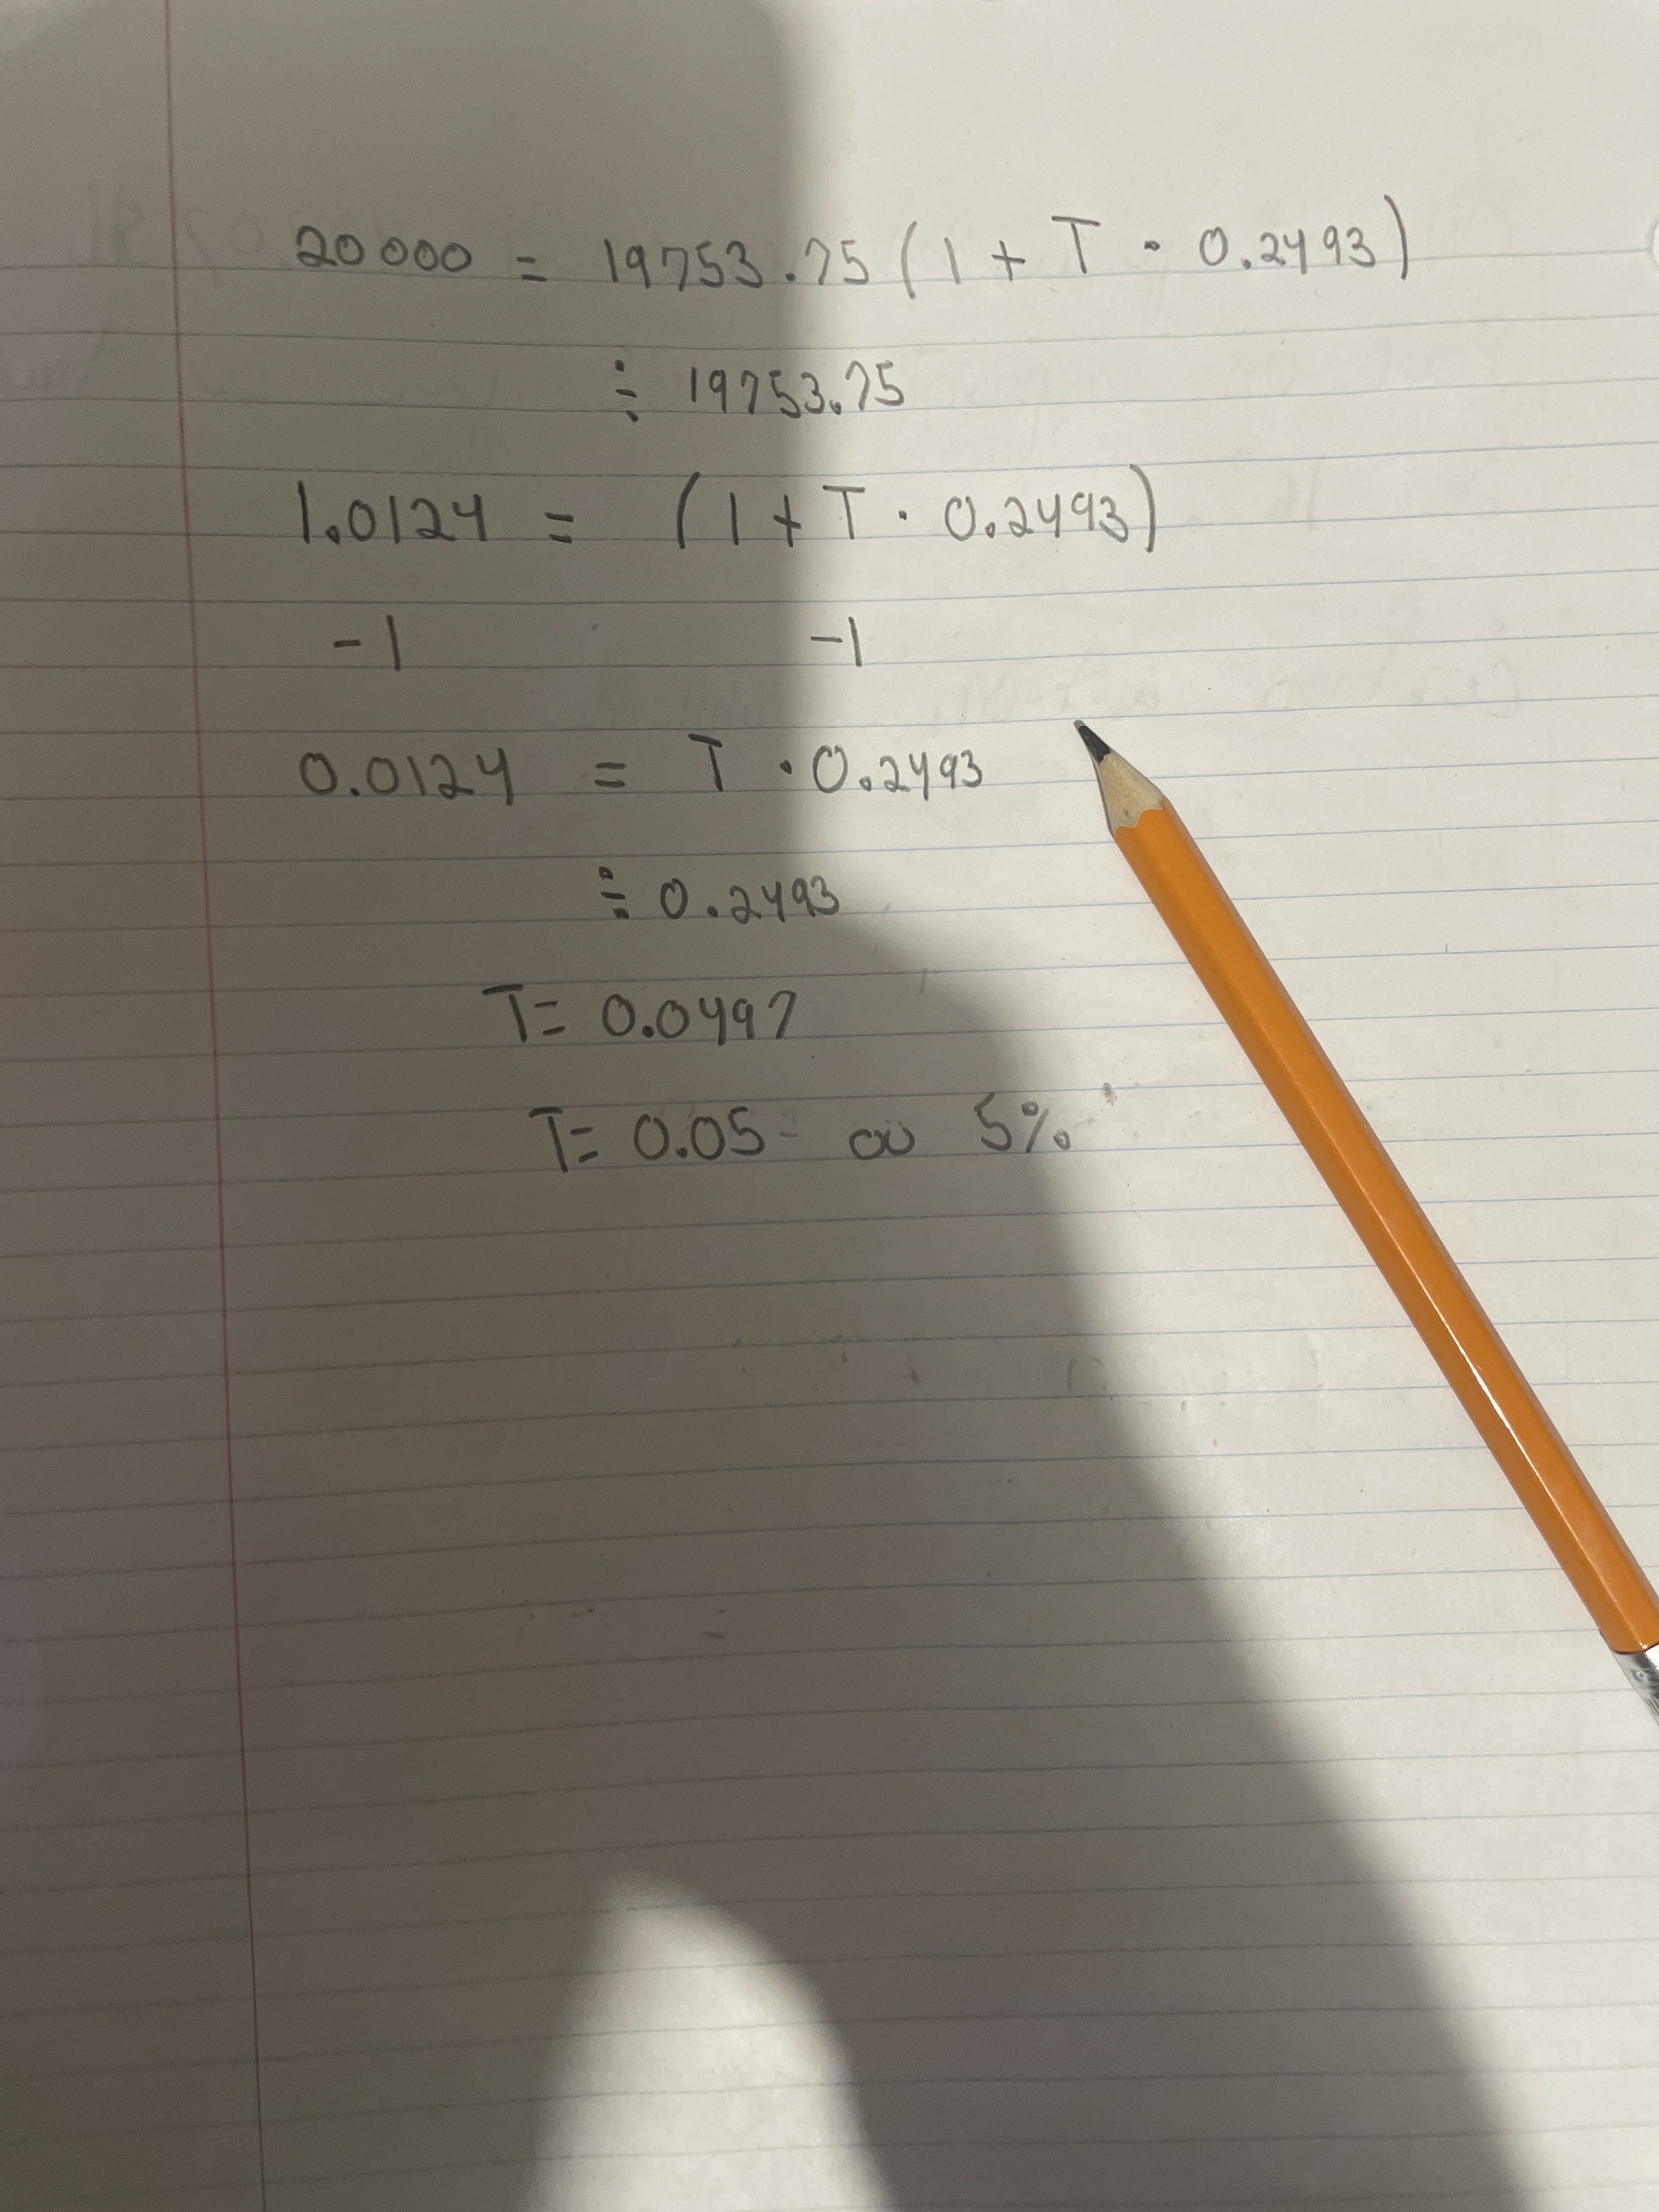 20000 = 19753.75 (1 + T · 0.2493)
÷ 19753.75
1.0124 = (1 + T · 0.2493)
-1 -1
0.0124 = T · 0.2493
÷ 0.2493
T= 0.0497
T= 0.05 ou 5%